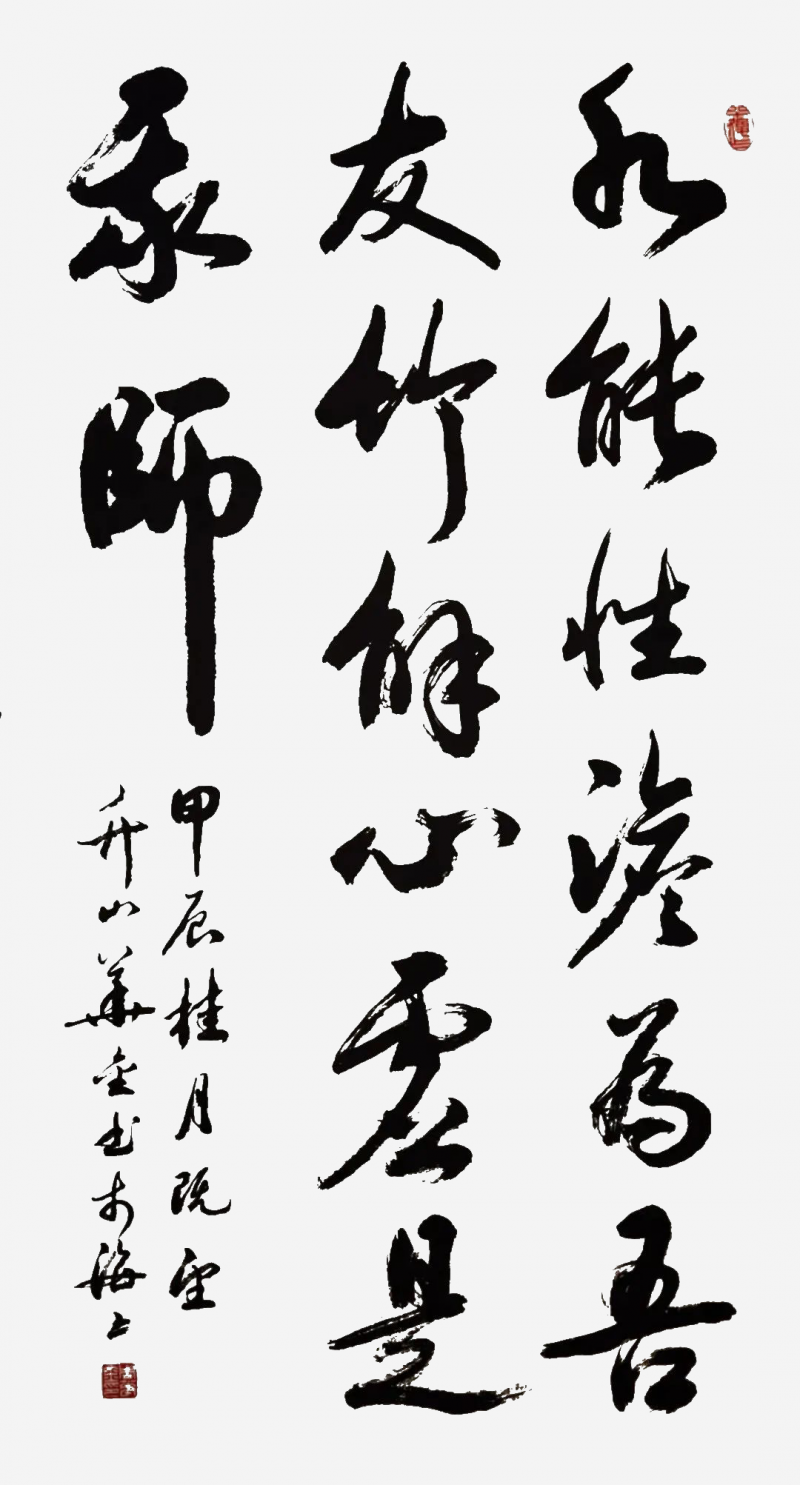 水能性澹為吾
友竹解心虛是
我師
甲辰桂月既望
山華書於海上